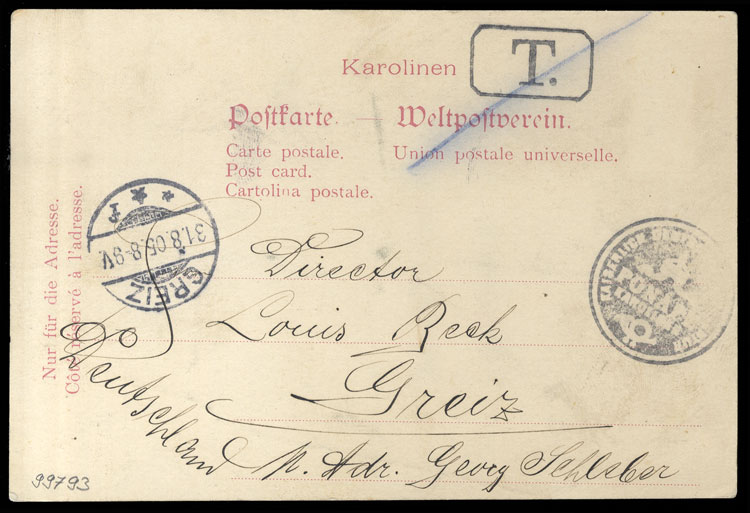 T.
Karolinen
Postkarte. — Weltpostverein.
Carte postale. Union postale universelle.
Post card.
Cartolina postale.
Nur für die Adresse.
Côté réservé à l'adresse.
GREIZ
31.8.05.8-9V.
Director
Louis Beck
Greiz
Deutschland
p. Adr. Georg Schleber
PONAPE
99793